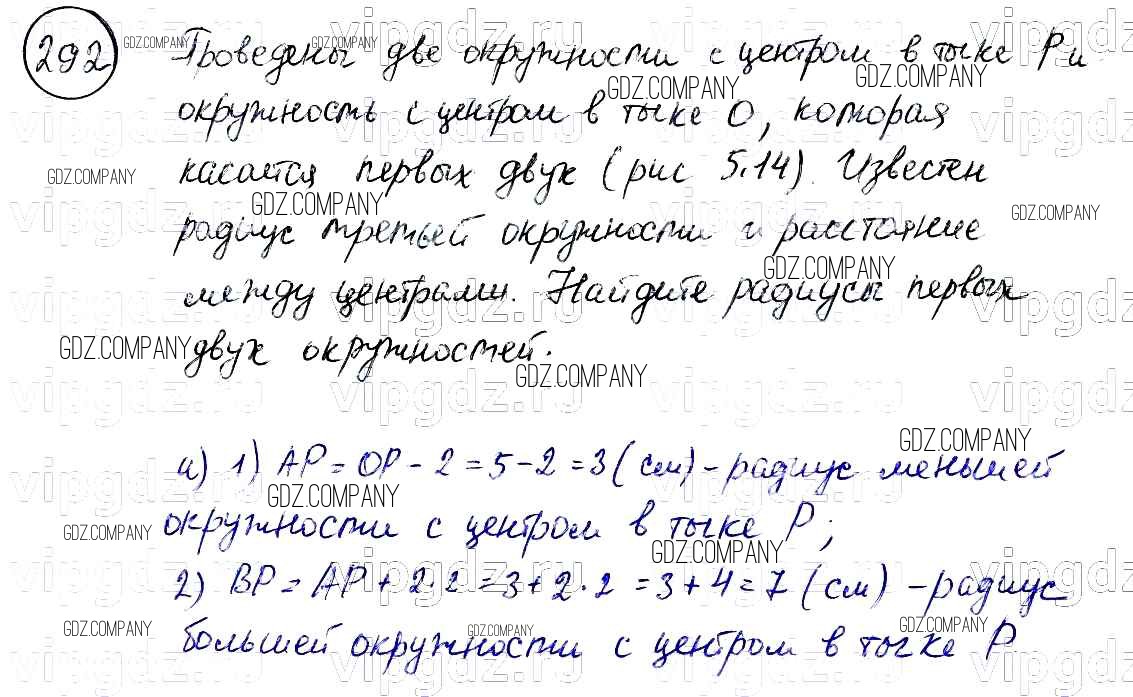 292 Проведены две окружности с центром в точке P и
окружность с центром в точке O, которая
касается первых двух (рис 5.14). Известен
радиус третьей окружности и расстояние
между центрами. Найдите радиусы первых
двух окружностей.
а) 1) AP = OP - 2 = 5 - 2 = 3 (см) - радиус меньшей
окружности с центром в точке P;
2) BP = AP + 2·2 = 3 + 2·2 = 3 + 4 = 7 (см) - радиус
большей окружности с центром в точке P
GDZ.COMPANY
vipgdz.ru